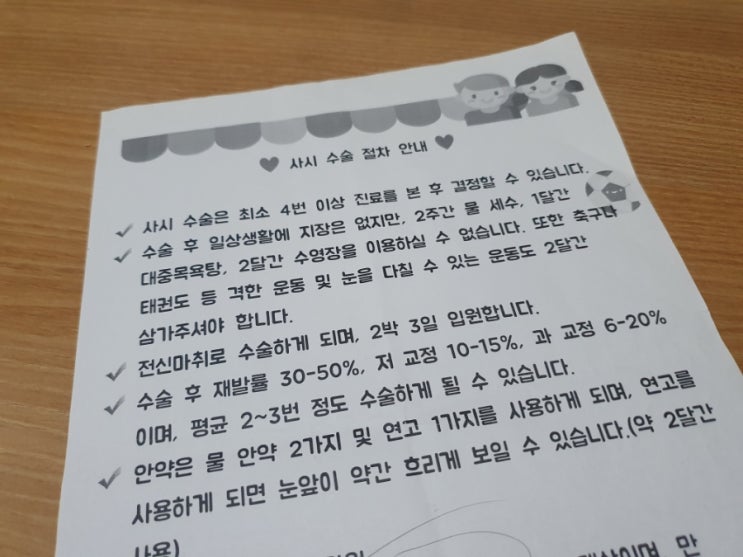 사시 수술 절차 안내
사시 수술은 최소 4번 이상 진료를 본 후 결정할 수 있습니다.
수술 후 일상생활에 지장은 없지만, 2주간 물 세수, 1달간
대중목욕탕, 2달간 수영장을 이용하실 수 없습니다. 또한 축구나
태권도 등 격한 운동 및 눈을 다칠 수 있는 운동도 2달간
삼가주셔야 합니다.
전신마취로 수술하게 되며, 2박 3일 입원합니다.
수술 후 재발률 30-50%, 저 교정 10-15%, 과 교정 6-20%
이며, 평균 2~3번 정도 수술하게 될 수 있습니다.
안약은 물 안약 2가지 및 연고 1가지를 사용하게 되며, 연고를
사용하게 되면 눈앞이 약간 흐리게 보일 수 있습니다.(약 2달간
사용)